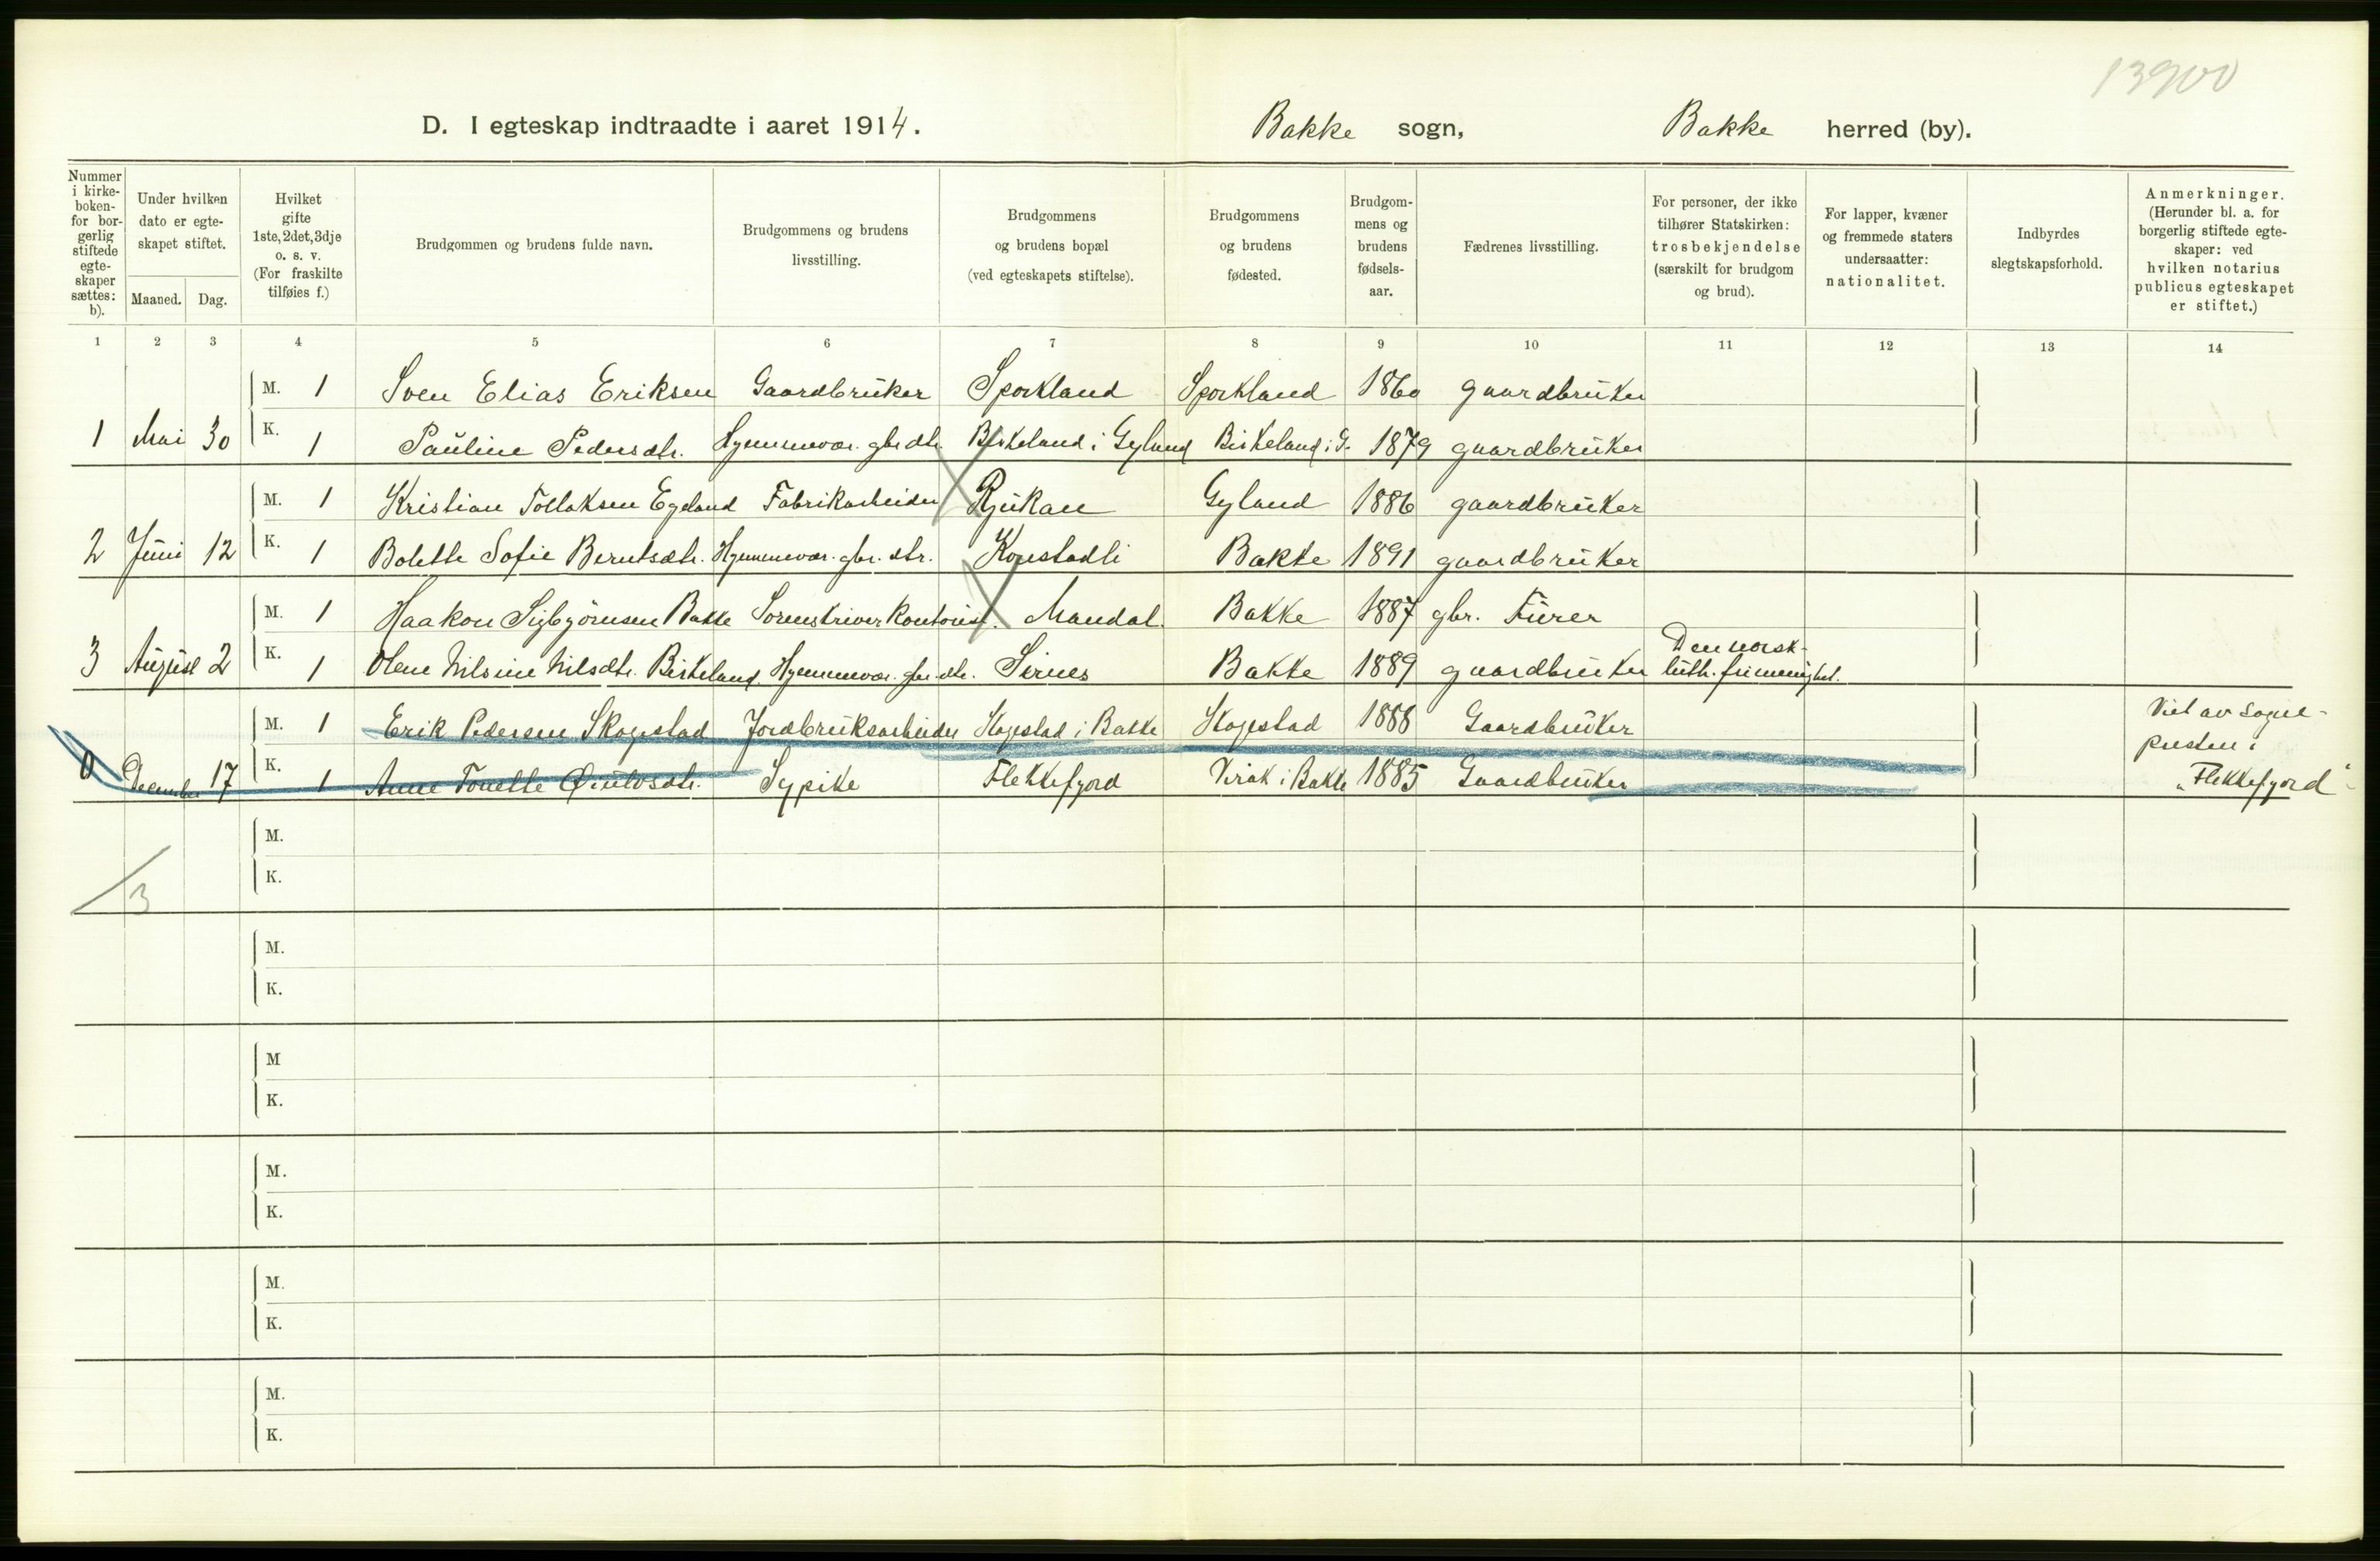 13900
D. I egteskap indtraadte i aaret 1914. Bakke sogn, Bakke herred (by).
Nummer i kirke- boken- for bor- gerlig stiftede egte- skaper sættes: b).
Under hvilken dato er egte- skapet stiftet.
Maaned. Dag.
Hvilket gifte 1ste, 2det, 3dje o. s. v. (For fraskilte tilføies f.)
Brudgommen og brudens fulde navn.
Brudgommens og brudens livsstilling.
Brudgommens og brudens bopæl (ved egteskapets stiftelse).
Brudgommens og brudens fødested.
Brudgom- mens og brudens fødsels- aar.
Fædrenes livsstilling.
For personer, der ikke tilhører Statskirken: trosbekjendelse (særskilt for brudgom og brud).
For lapper, kvæner og fremmede staters undersaatter: nationalitet.
Indbyrdes slegtskapsforhold.
Anmerkninger. (Herunder bl. a. for borgerlig stiftede egte- skaper: ved hvilken notarius publicus egteskapet er stiftet.)
1 2 3 4 5 6 7 8 9 10 11 12 13 14
M. 1 Sven Elias Eriksen Gaardbruker Sporkland Sporkland 1860 gaardbruker
1 Mai 30 K. 1 Pauline Pedersdtr. Hjemmevær. gbr. dtr. Birkeland i Gyland Birkeland i G. 1879 gaardbruker
M. 1 Kristian Tollaksen Egeland Fabrikarbeider Rjukan Gyland 1886 gaardbruker
2 Juni 12 K. 1 Bolette Sofie Berntsdtr. Hjemmevær. gbr. dtr. Konstadli Bakke 1891 gaardbruker
M. 1 Haakon Sigbjörnsen Bakke Sorenskriverkontorist. Mandal. Bakke 1887 gbr. Fürer
3 August 2 K. 1 Olene Nilsine Nilsdtr. Birkeland. Hjemmevær. gbr. dtr. Sirnes Bakke 1889 gaardbruker Den norsk- luth. frimenighet.
M. 1 Erik Pedersen Skogestad Jordbruksarbeider Skogestad i Bakke Skogestad 1888 Gaardbruker Viet av sogne-
presten i
0 December 17 K. 1 Anne Tonette Øiulvsdtr. Sypike Flekkefjord Virak i Bakke 1885 Gaardbruker „Flekkefjord“
M.
K.
3
M.
K.
M
K.
M.
K.
M.
K.
M.
K.